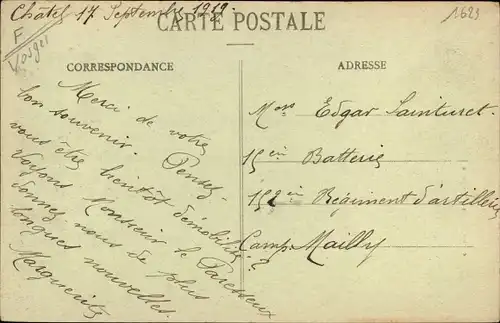 Châtel 17 Septembre 1919.
CARTE POSTALE
1623
F
Vosges
CORRESPONDANCE
Merci de votre
bon souvenir. Pensez-
vous être bientôt démobilisé
Voyons Monsieur le Paresseux
donnez nous de plus
longues nouvelles.
Marguerite
ADRESSE
Mons Edgar Sainturet
15ème Batterie
152ème Régiment d'artillerie
Camp Mailly